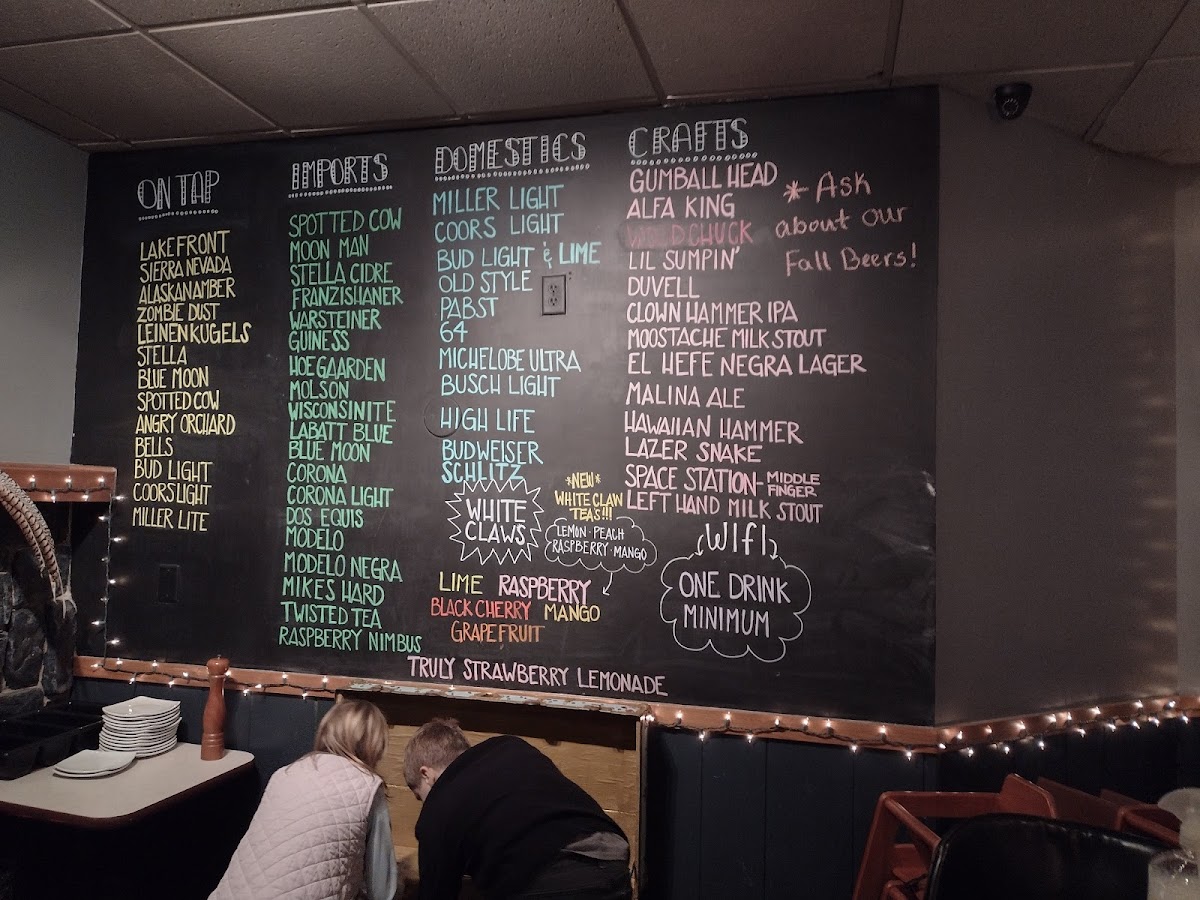 ON TAP
LAKEFRONT
SIERRA NEVADA
ALASKAN AMBER
ZOMBIE DUST
LEINENKUGELS
STELLA
BLUE MOON
SPOTTED COW
ANGRY ORCHARD
BELLS
BUD LIGHT
COORS LIGHT
MILLER LITE
IMPORTS
SPOTTED COW
MOON MAN
STELLA CIDRE
FRANZISHANER
WARSTEINER
GUINESS
HOEGAARDEN
MOLSON
WISCONSINITE
LABATT BLUE
BLUE MOON
CORONA
CORONA LIGHT
DOS EQUIS
MODELO
MODELO NEGRA
MIKES HARD
TWISTED TEA
RASPBERRY NIMBUS
DOMESTICS
MILLER LIGHT
COORS LIGHT
BUD LIGHT & LIME
OLD STYLE
PABST
64
MICHELOBE ULTRA
BUSCH LIGHT
HIGH LIFE
BUDWEISER
SCHLITZ
WHITE
CLAWS
*NEW*
WHITE CLAW
TEA'S!!!
LEMON · PEACH
RASPBERRY · MANGO
LIME RASPBERRY
BLACK CHERRY MANGO
GRAPEFRUIT
TRULY STRAWBERRY LEMONADE
CRAFTS
GUMBALL HEAD
ALFA KING
CHUCK
LIL SUMPIN'
DUVELL
CLOWN HAMMER IPA
MOOSTACHE MILK STOUT
EL HEFE NEGRA LAGER
MALINA ALE
HAWAIIAN HAMMER
LAZER SNAKE
SPACE STATION- MIDDLE
FINGER
LEFT HAND MILK STOUT
* Ask
about our
Fall Beers!
WIFI
ONE DRINK
MINIMUM